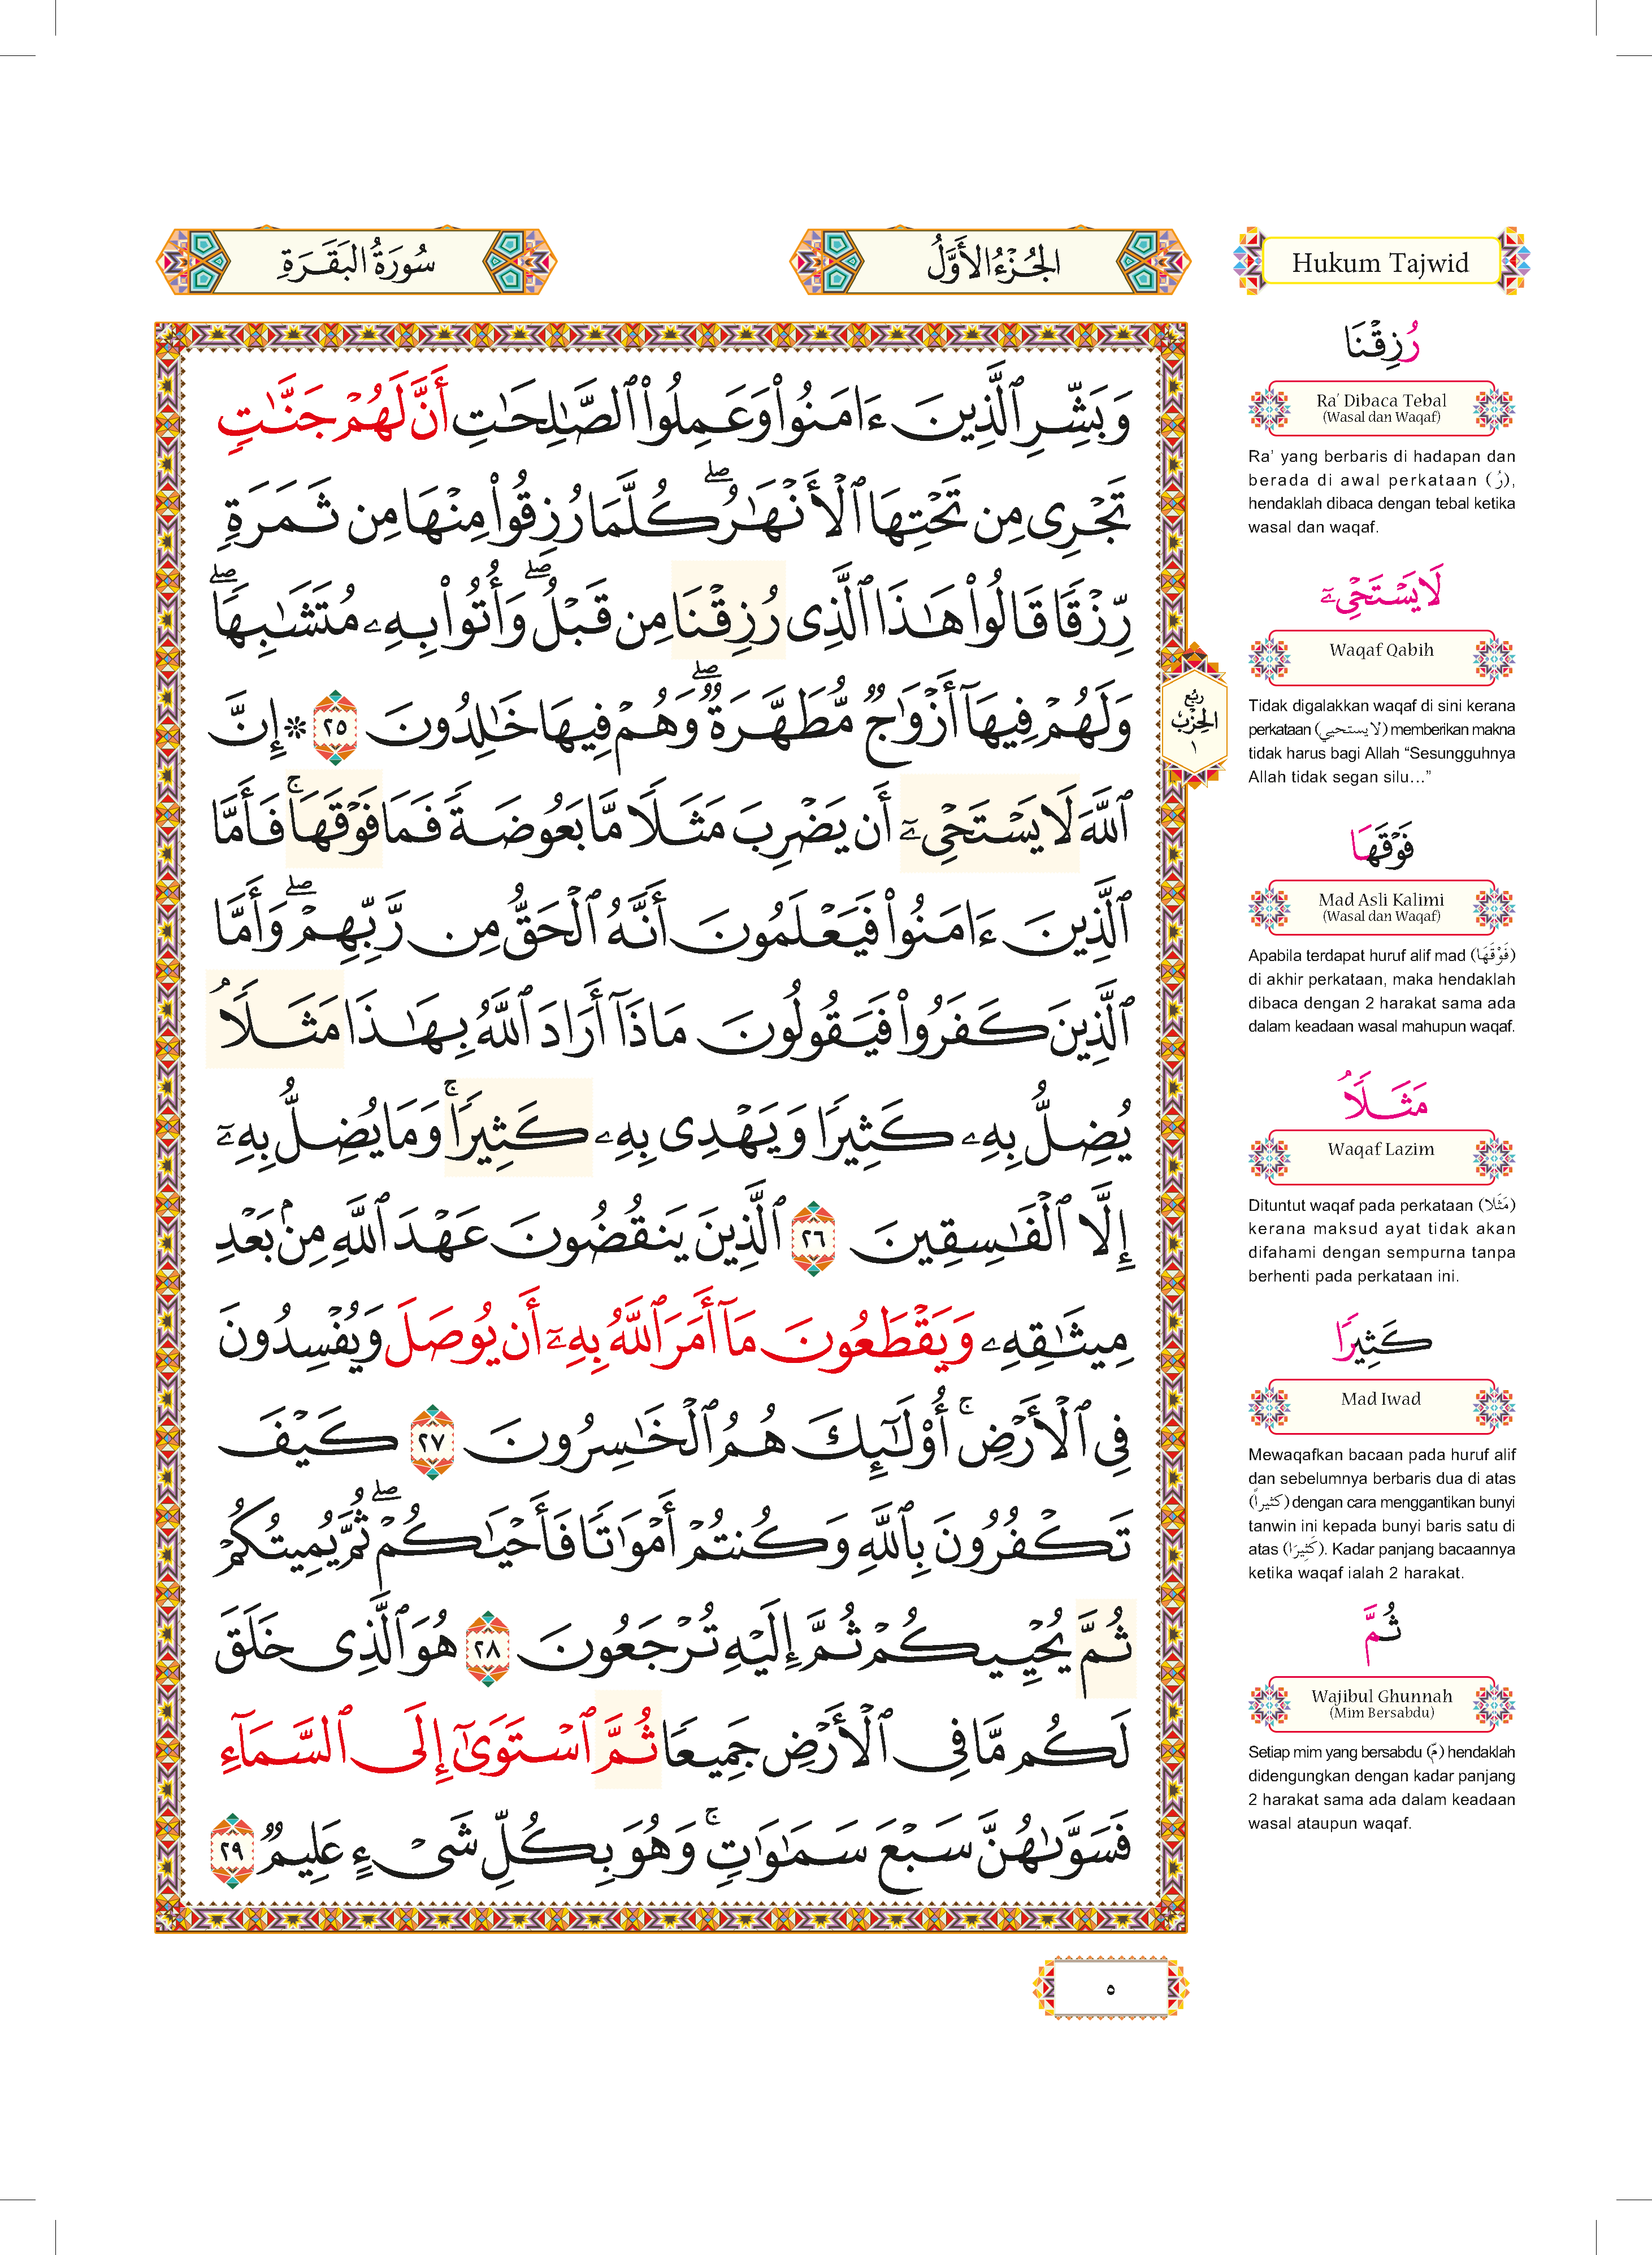 سُورَةُ البَقَرَةِ
الجُزْءُ الأَوَّلُ
وَبَشِّرِ ٱلَّذِينَ ءَامَنُوا۟ وَعَمِلُوا۟ ٱلصَّـٰلِحَـٰتِ أَنَّ لَهُمْ جَنَّـٰتٍ
تَجْرِى مِن تَحْتِهَا ٱلْأَنْهَـٰرُ ۖ كُلَّمَا رُزِقُوا۟ مِنْهَا مِن ثَمَرَةٍ
رِّزْقًا قَالُوا۟ هَـٰذَا ٱلَّذِى رُزِقْنَا مِن قَبْلُ ۖ وَأُتُوا۟ بِهِۦ مُتَشَـٰبِهًا ۖ
وَلَهُمْ فِيهَآ أَزْوَٰجٌ مُّطَهَّرَةٌ ۖ وَهُمْ فِيهَا خَـٰلِدُونَ ٢٥ * إِنَّ
ٱللَّهَ لَا يَسْتَحْىِۦٓ أَن يَضْرِبَ مَثَلًا مَّا بَعُوضَةً فَمَا فَوْقَهَا ۚ فَأَمَّا
ٱلَّذِينَ ءَامَنُوا۟ فَيَعْلَمُونَ أَنَّهُ ٱلْحَقُّ مِن رَّبِّهِمْ ۖ وَأَمَّا
ٱلَّذِينَ كَفَرُوا۟ فَيَقُولُونَ مَاذَآ أَرَادَ ٱللَّهُ بِهَـٰذَا مَثَلًا ۘ
يُضِلُّ بِهِۦ كَثِيرًا وَيَهْدِى بِهِۦ كَثِيرًا ۚ وَمَا يُضِلُّ بِهِۦٓ
إِلَّا ٱلْفَـٰسِقِينَ ٢٦ ٱلَّذِينَ يَنقُضُونَ عَهْدَ ٱللَّهِ مِنۢ بَعْدِ
مِيثَـٰقِهِۦ وَيَقْطَعُونَ مَآ أَمَرَ ٱللَّهُ بِهِۦٓ أَن يُوصَلَ وَيُفْسِدُونَ
فِى ٱلْأَرْضِ ۚ أُو۟لَـٰٓئِكَ هُمُ ٱلْخَـٰسِرُونَ ٢٧ كَيْفَ
تَكْفُرُونَ بِٱللَّهِ وَكُنتُمْ أَمْوَٰتًا فَأَحْيَـٰكُمْ ۖ ثُمَّ يُمِيتُكُمْ
ثُمَّ يُحْيِيكُمْ ثُمَّ إِلَيْهِ تُرْجَعُونَ ٢٨ هُوَ ٱلَّذِى خَلَقَ
لَكُم مَّا فِى ٱلْأَرْضِ جَمِيعًا ثُمَّ ٱسْتَوَىٰٓ إِلَى ٱلسَّمَآءِ
فَسَوَّىٰهُنَّ سَبْعَ سَمَـٰوَٰتٍ ۚ وَهُوَ بِكُلِّ شَىْءٍ عَلِيمٌ ٢٩
ربع
الحزب
١
٥
Hukum Tajwid
رُزِقْنَا
Ra' Dibaca Tebal
(Wasal dan Waqaf)
Ra' yang berbaris di hadapan dan
berada di awal perkataan (رُ),
hendaklah dibaca dengan tebal ketika
wasal dan waqaf.
لَا يَسْتَحْىِۦٓ
Waqaf Qabih
Tidak digalakkan waqaf di sini kerana
perkataan (لا يستحيي) memberikan makna
tidak harus bagi Allah “Sesungguhnya
Allah tidak segan silu…”
فَوْقَهَا
Mad Asli Kalimi
(Wasal dan Waqaf)
Apabila terdapat huruf alif mad (فَوْقَهَا)
di akhir perkataan, maka hendaklah
dibaca dengan 2 harakat sama ada
dalam keadaan wasal mahupun waqaf.
مَثَلًا ۘ
Waqaf Lazim
Dituntut waqaf pada perkataan (مَثَلا)
kerana maksud ayat tidak akan
difahami dengan sempurna tanpa
berhenti pada perkataan ini.
كَثِيرًا
Mad Iwad
Mewaqafkan bacaan pada huruf alif
dan sebelumnya berbaris dua di atas
(كثيراً) dengan cara menggantikan bunyi
tanwin ini kepada bunyi baris satu di
atas (كَثِيرَا). Kadar panjang bacaannya
ketika waqaf ialah 2 harakat.
ثُمَّ
Wajibul Ghunnah
(Mim Bersabdu)
Setiap mim yang bersabdu (مّ) hendaklah
didengungkan dengan kadar panjang
2 harakat sama ada dalam keadaan
wasal ataupun waqaf.